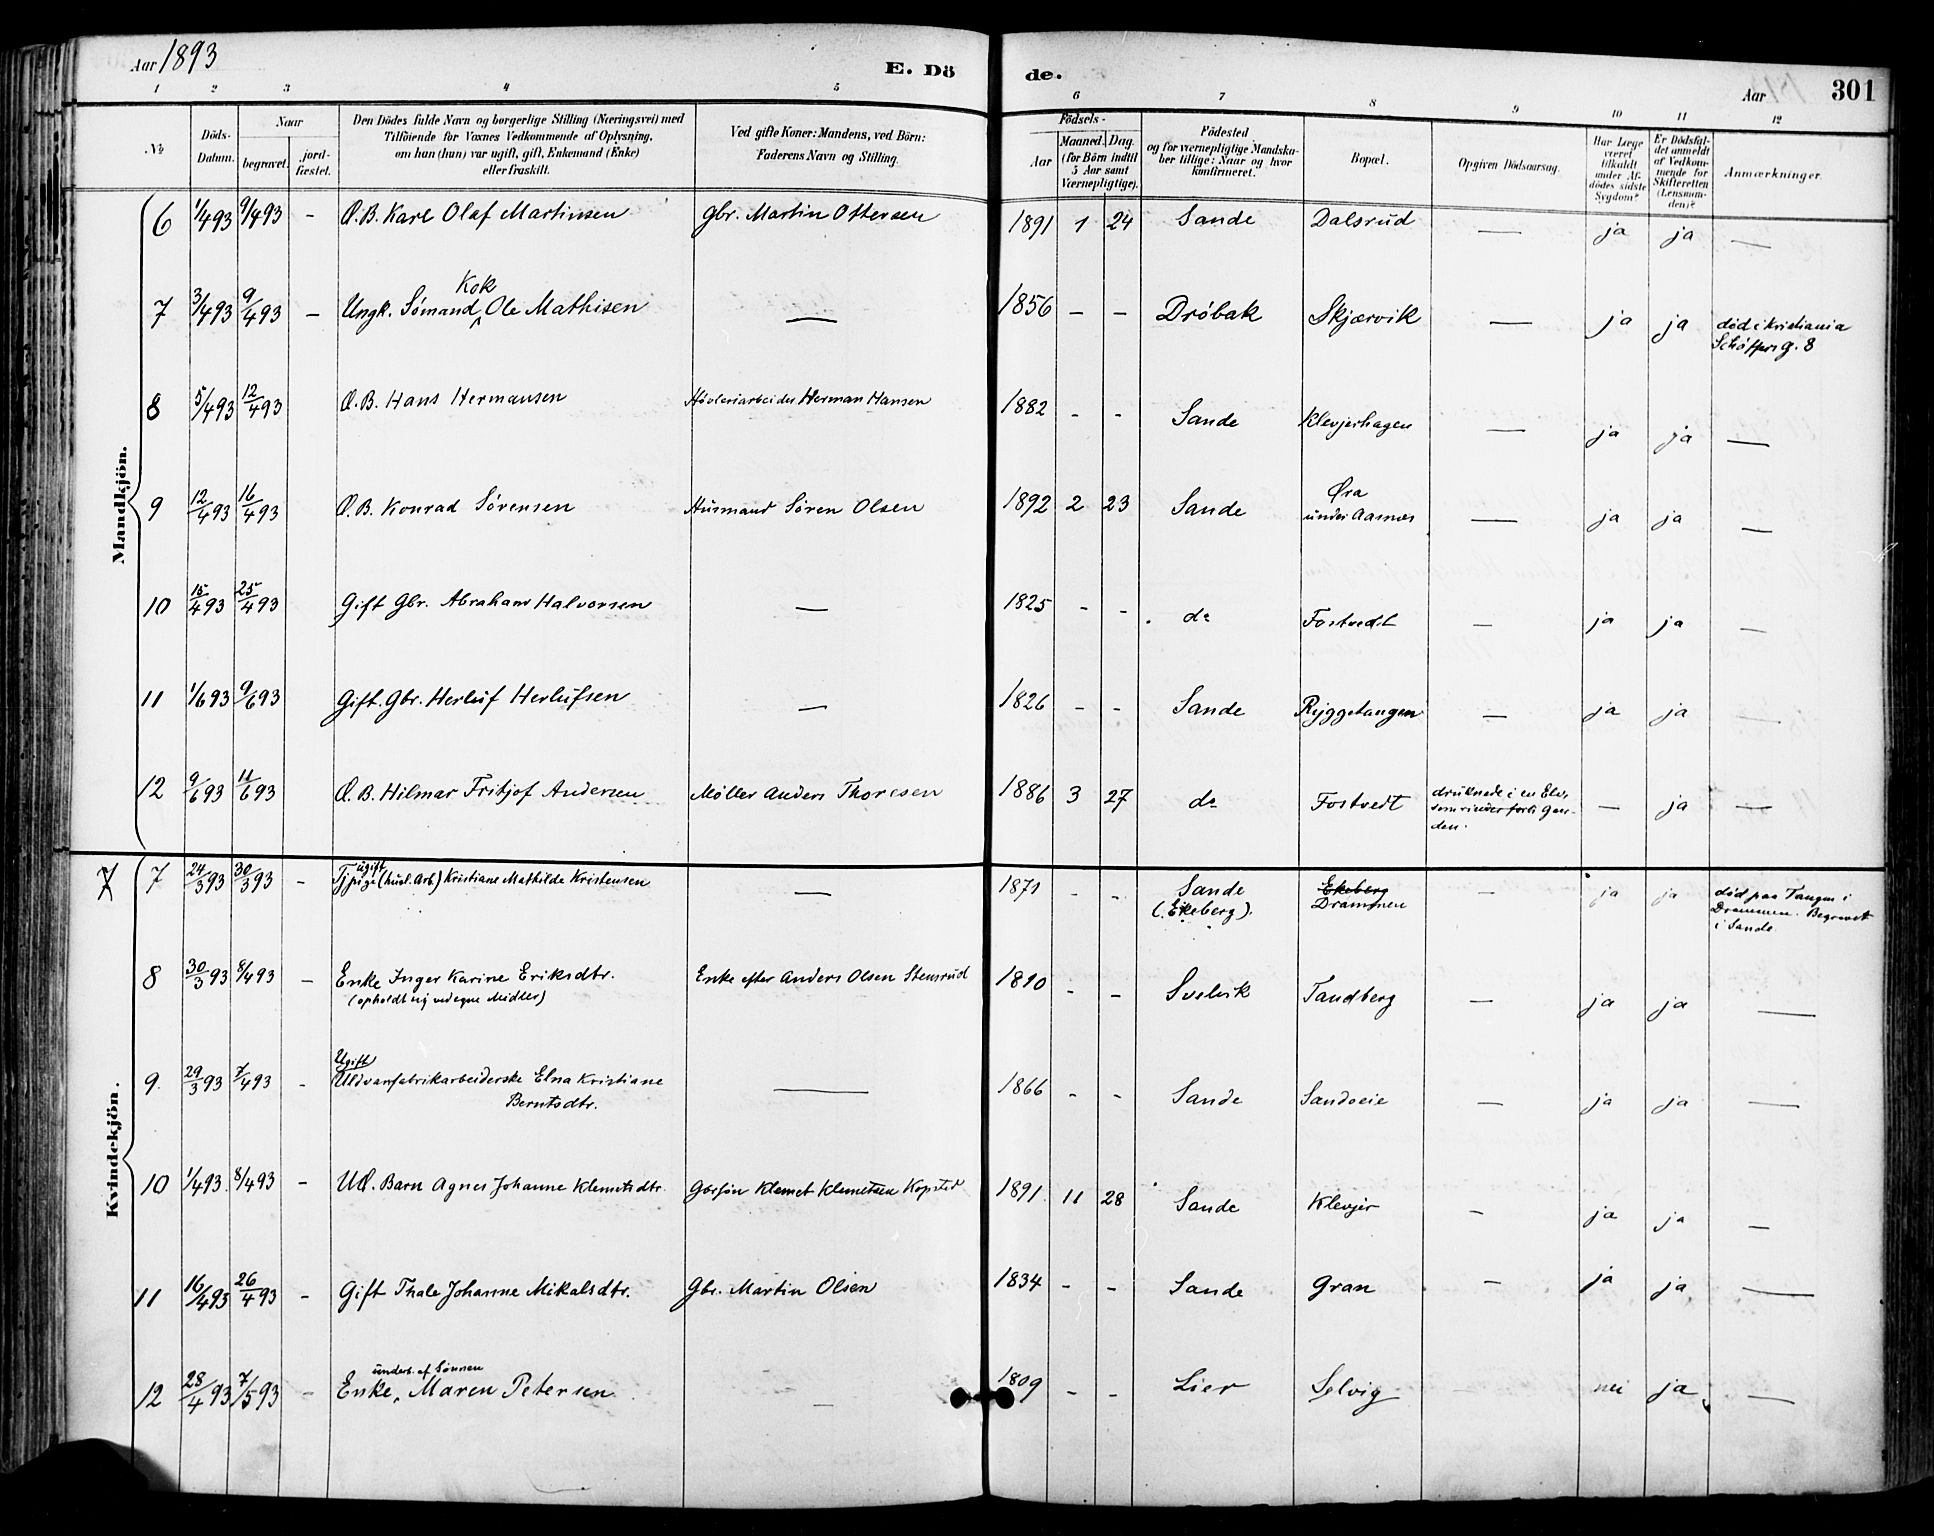 Aar 1893
E. Dö
de.
Aar
301
1 2 3 4 5 6 7 8 9 10 11 12
№
Döds-Datum.
Naar
begravet.
jord-fæstet.
Den Dödes fulde Navn og borgerlige Stilling (Næringsvei) med
Tilföiende for Voxnes Vedkommende af Oplysning,
om han (hun) var ugift, gift, Enkemand (Enke)
eller fraskilt.
Ved gifte Koner: Mandens, ved Börn:
Faderens Navn og Stilling.
Födsels-
Aar
Maaned. Dag.
(for Börn indtil
5 Aar samt
Værnepligtige).
Födested
og for værnepligtige Mandska-
ber tillige: Naar og hvor
konfirmeret.
Bopæl.
Opgiven Dödsaarsag.
Har Læge
været
tilkaldt
under Af-
dödes sidste
Sygdom?
Er Dödsfal-
det anmeldt
af Vedkom-
mende for
Skifteretten
(Lensman-
den)?
Anmærkninger.
Mandkjön.
6 1/4 93 9/4 93 - Æ. B. Karl Olaf Martinsen Gbr. Martin Ottersen 1891 1 24 Sande Dalsrud — ja ja —
Kok
7 3/4 93 9/4 93 - Ungk. Sømand Ole Mathisen — 1856 - - Drøbak Skjærvik — ja ja død i Kristiania
g. 8
8 5/4 93 12/4 93 Æ. B. Hans Hermansen Høvleriarbeider Herman Hansen 1882 - - Sande Klevjerhagen — ja ja —
9 12/4 93 16/4 93 Æ. B. Konrad Sørensen Husmand Søren Olsen 1892 2 23 Sande Øra
under Aasnes — ja ja —
10 15/4 93 25/4 93 Gift Gbr. Abraham Halvorsen — 1825 - - do Fostvedt — ja ja —
11 1/6 93 9/6 93 Gift. Gbr. Herluf Herlufsen — 1826 - - Sande Ryggetangen — ja ja —
12 9/6 93 11/6 93 Æ. B. Hilmar Fritjof Andersen Møller Anders Thoresen 1886 3 27 do Fostvedt druknede i en Elv,
som rinder forbi Gaar-
den. — ja —
Kvindekjön.
ugift
7 7 24/3 93 30/3 93 - Tjpige (husl. Arb.) Kristiane Mathilde Kristensen — 1871 - - Sande
(Ekeberg). Ekeberg
Drammen - ja ja død paa Tangen i
Drammen. Begravet
i Sande.
8 30/3 93 8/4 93 - Enke Inger Karine Eriksdtr. Enke efter Anders Olsen Stensrud 1810 - - Svelvik Tandberg — ja ja —
(opholdt sig ved egne Midler)
Ugift
9. 29/3 93 7/4 93 - Uldvarefabrikarbeiderske Elna Kristiane — 1866 - - Sande Sandseie — ja ja —
Berntsdtr.
10 1/4 93. 8/4 93 - UÆ. Barn Agnes Johanne Klemetsdtr. Gbrsøn Klemet Klemetsen Kopstad 1891. 11 28 Sande Klevjer - ja ja —
11 16/4 93 26/4 93 - Gift Thale Johanne Mikalsdtr. Gbr. Martin Olsen 1834 - - Sande Gran - ja ja —
underst. af Sønnen
12 28/4 93 7/5 93 - Enke, Maren Petersen — 1809 - - Lier Selvig — nei ja —